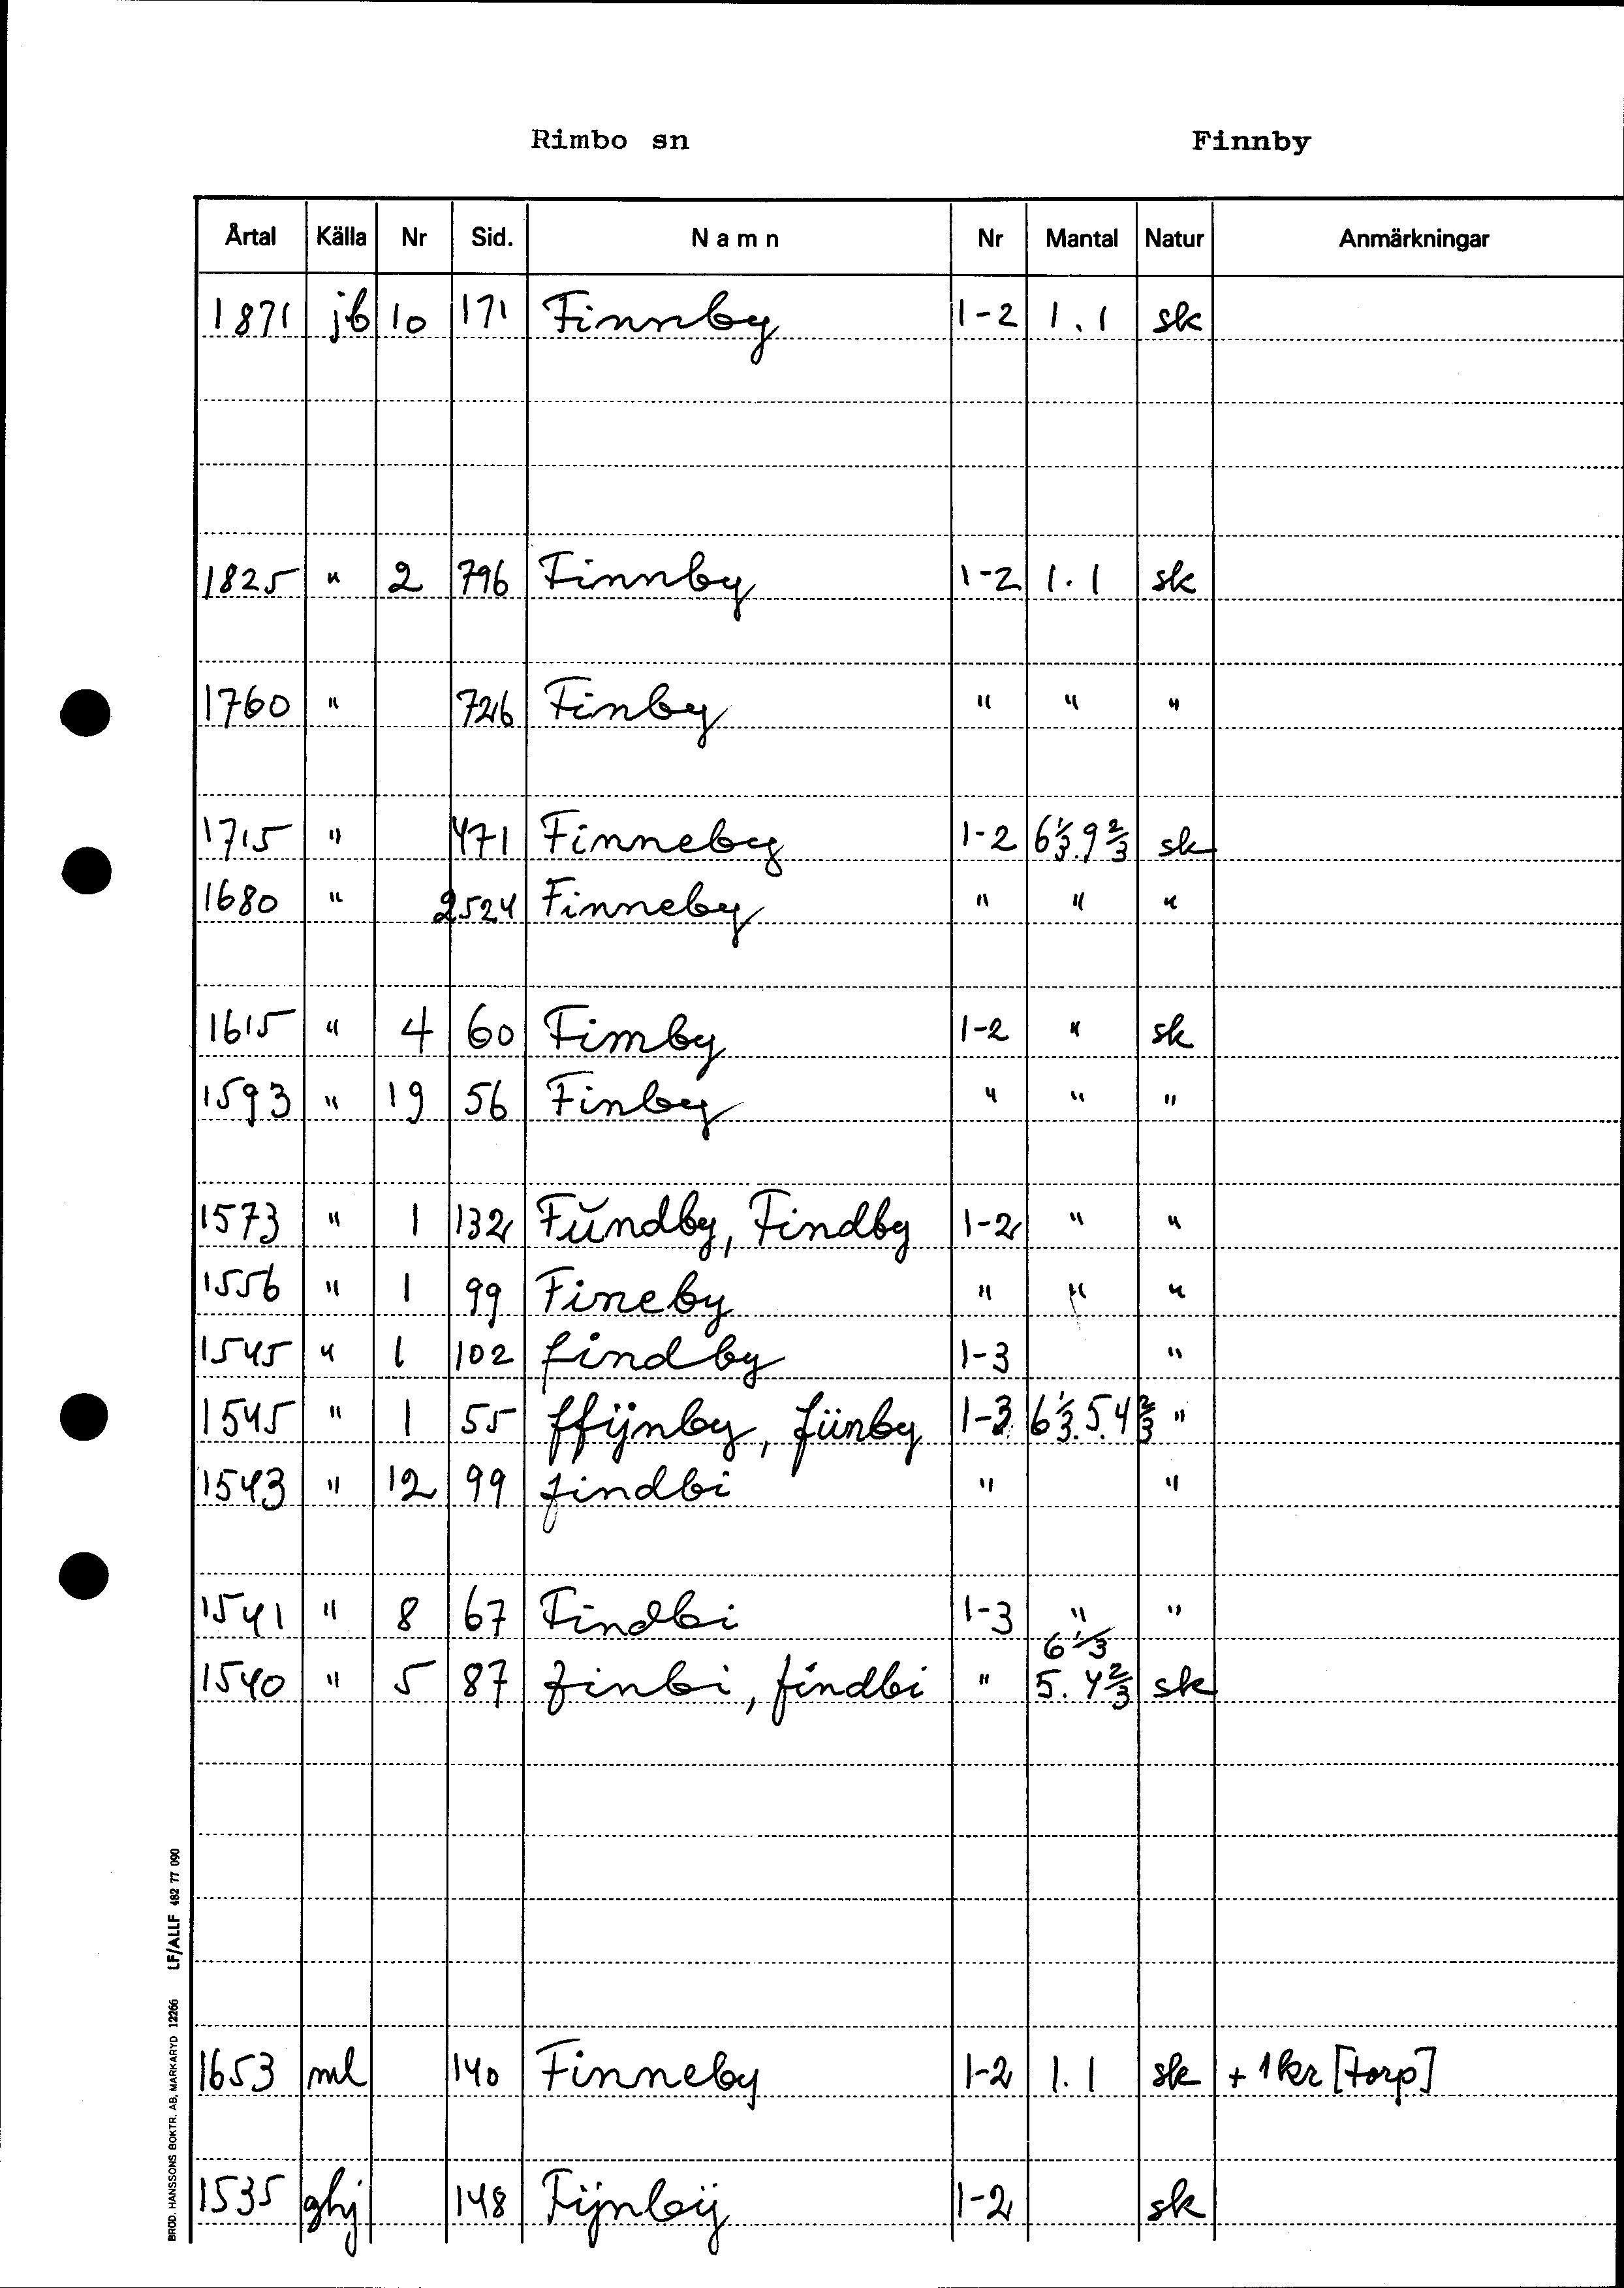 Rimbo sn Finnby
Årtal Källa Nr Sid. Namn Nr Mantal Natur Anmärkningar
1871 jb 10 171 Finnby 1-2 1.1 sk
1825 " 2 796 Finnby 1-2 1.1 sk
1760 " 726 Finby " " "
1715 " 471 Finneby 1-2 6 1/3. 9 2/3 sk
1680 " 2524 Finneby " " "
1615 " 4 60 Fimby 1-2 " sk
1593 " 19 56 Finby " " "
1573 " 1 132 Fŭndby, Findby 1-2 " "
1556 " 1 99 Fineby " " "
1545 " 1 102 findby 1-3 "
1545 " 1 55 ffijnby, fiinby 1-3 6 1/3. 5. 4 2/3 "
1543 " 12 99 findbi " "
1541 " 8 67 Findbi 1-3 " "
6 1/3
1540 " 5 87 finbi, findbi " 5. 4 2/3 sk
1653 ml 140 Finneby 1-2 1.1 sk + 1 kr [torp]
1535 ghj 148 Fijnbÿ 1-2 sk
BRÖD. HANSSONS BOKTR. AB, MARKARYD 12266 LF/ALLF 482 77 090